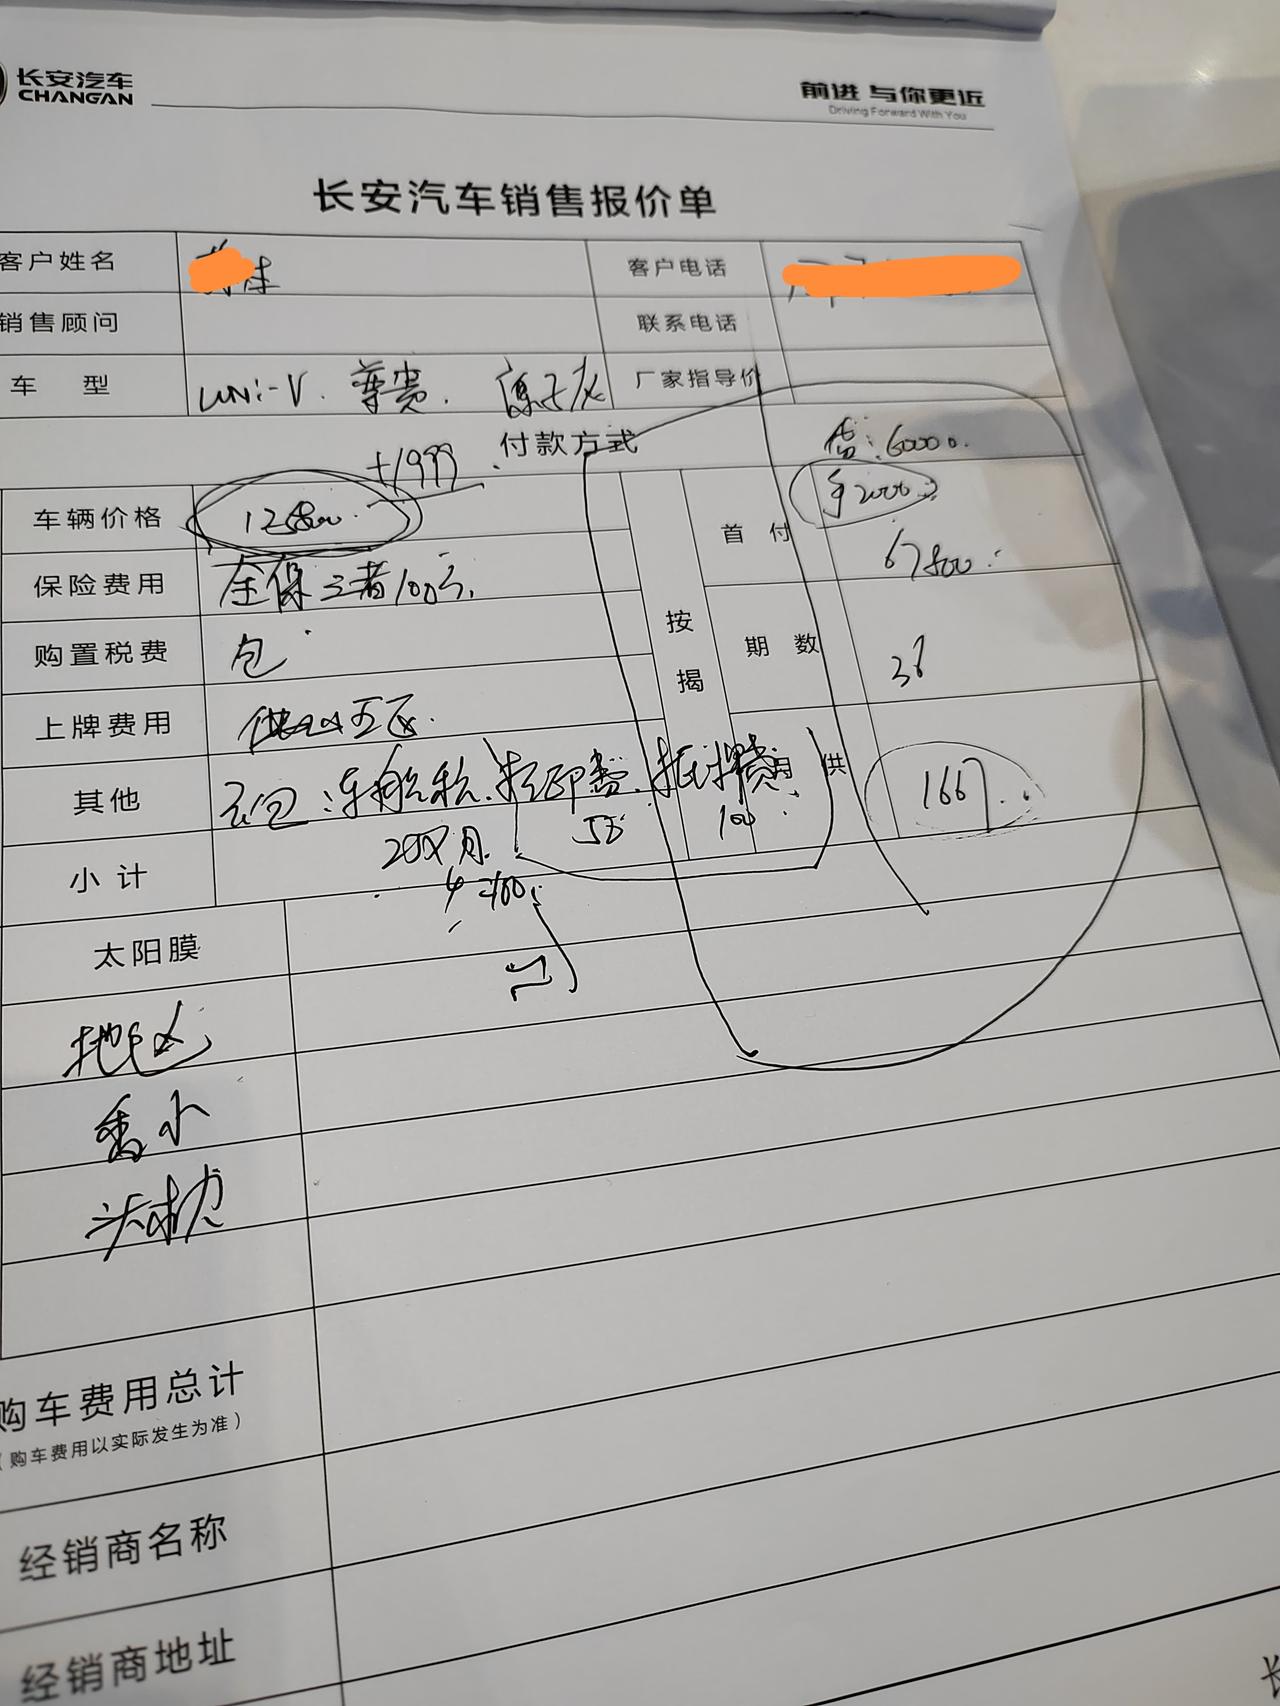 长安汽车
CHANGAN
前进 与你更近
Driving Forward With You
长安汽车销售报价单
客户姓名
客户电话
销售顾问
联系电话
车 型 UNi-V. 尊贵. 原子灰 厂家指导价
+1999. 付款方式 贷:60000.
车辆价格 125800. 按揭 首付 手2000
67800.
保险费用 全保 三者100万.
购置税费 包 期数 36
上牌费用
其他 不包:车船税、打印费、抵押费 月供 1667.
50 100
小计
太阳膜
香水
头枕
购车费用总计
(购车费用以实际发生为准)
经销商名称
经销商地址
长